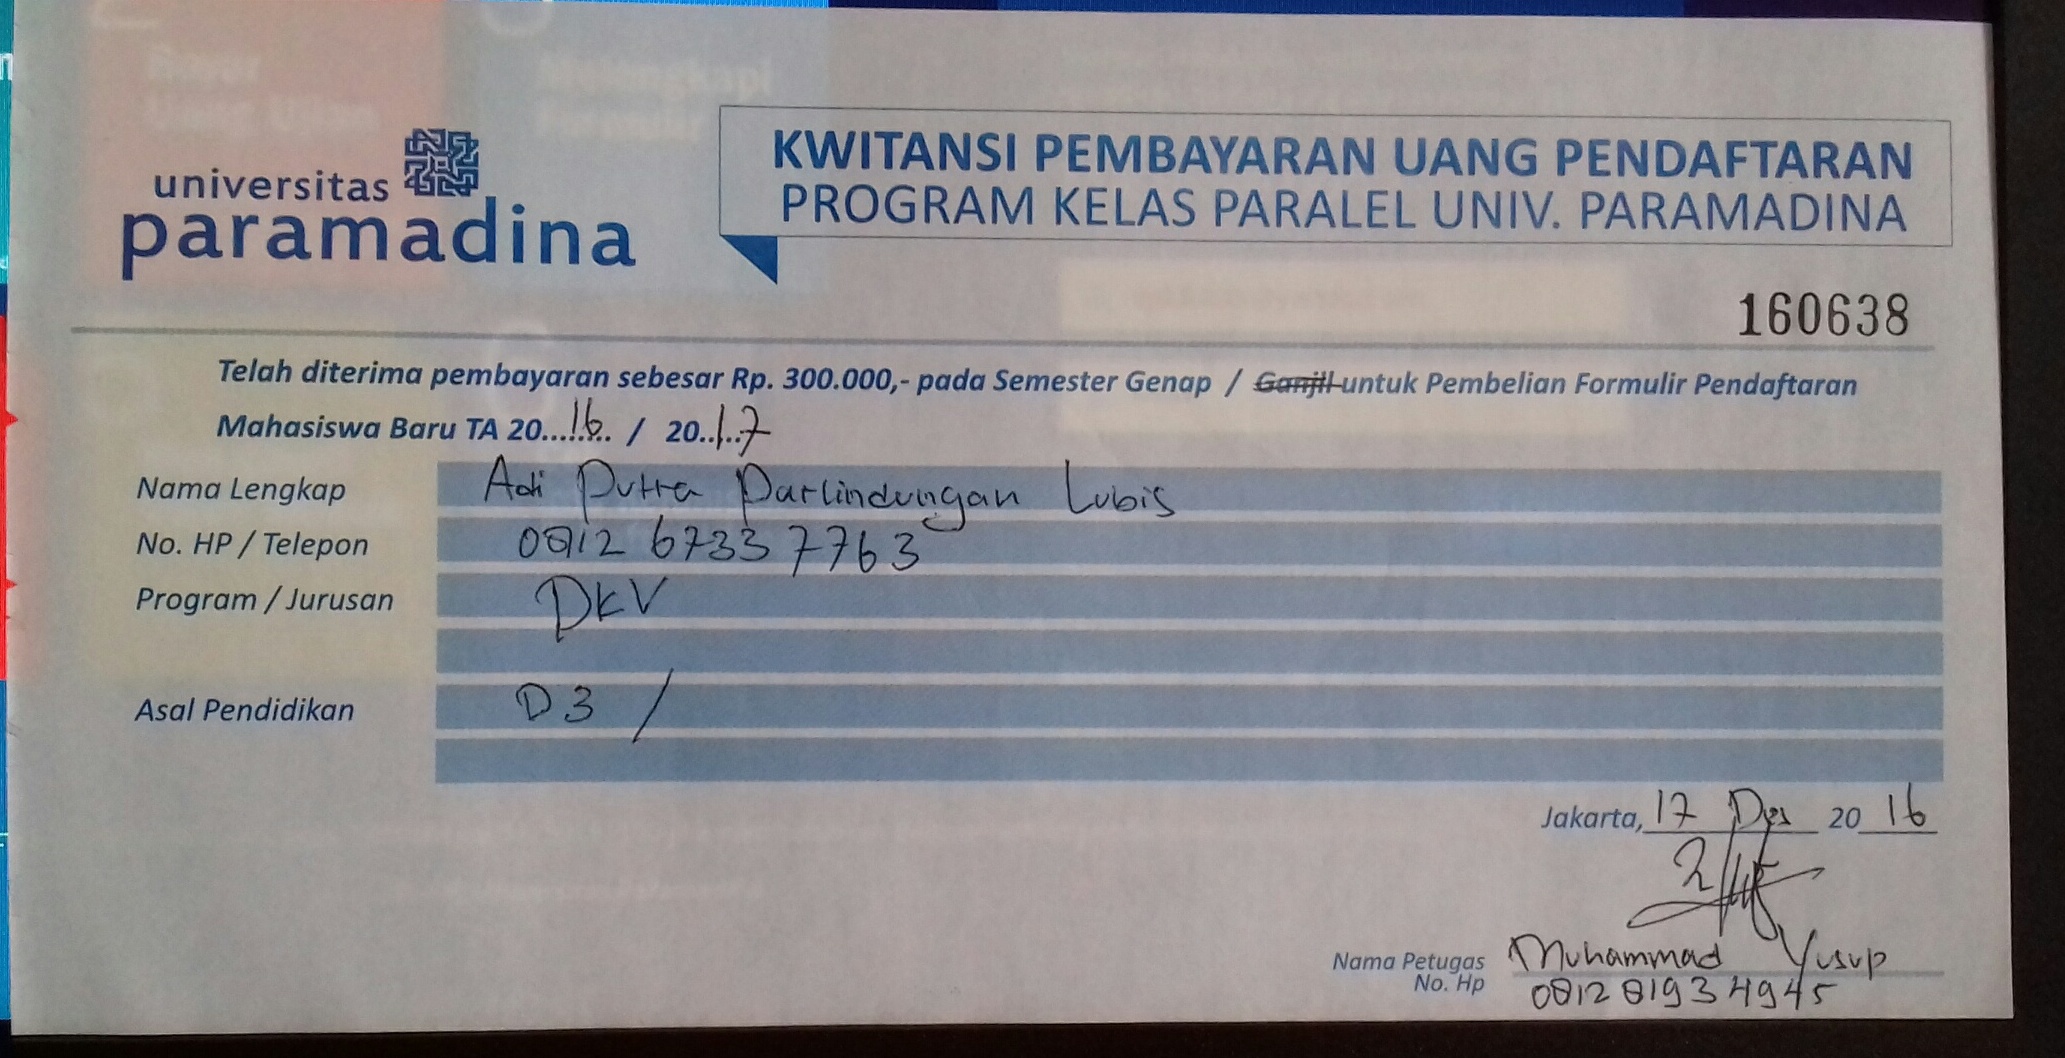 universitas
paramadina
KWITANSI PEMBAYARAN UANG PENDAFTARAN
PROGRAM KELAS PARALEL UNIV. PARAMADINA
160638
Telah diterima pembayaran sebesar Rp. 300.000,- pada Semester Genap / Ganjil untuk Pembelian Formulir Pendaftaran
Mahasiswa Baru TA 20...16... / 20..17
Nama Lengkap Adi Putra Parlindungan Lubis
No. HP / Telepon 0812 6733 7763
Program / Jurusan DKV
Asal Pendidikan D3 /
Jakarta, 17 Des 20 16
Nama Petugas Muhammad Yusup
No. Hp 0812 8193 4945